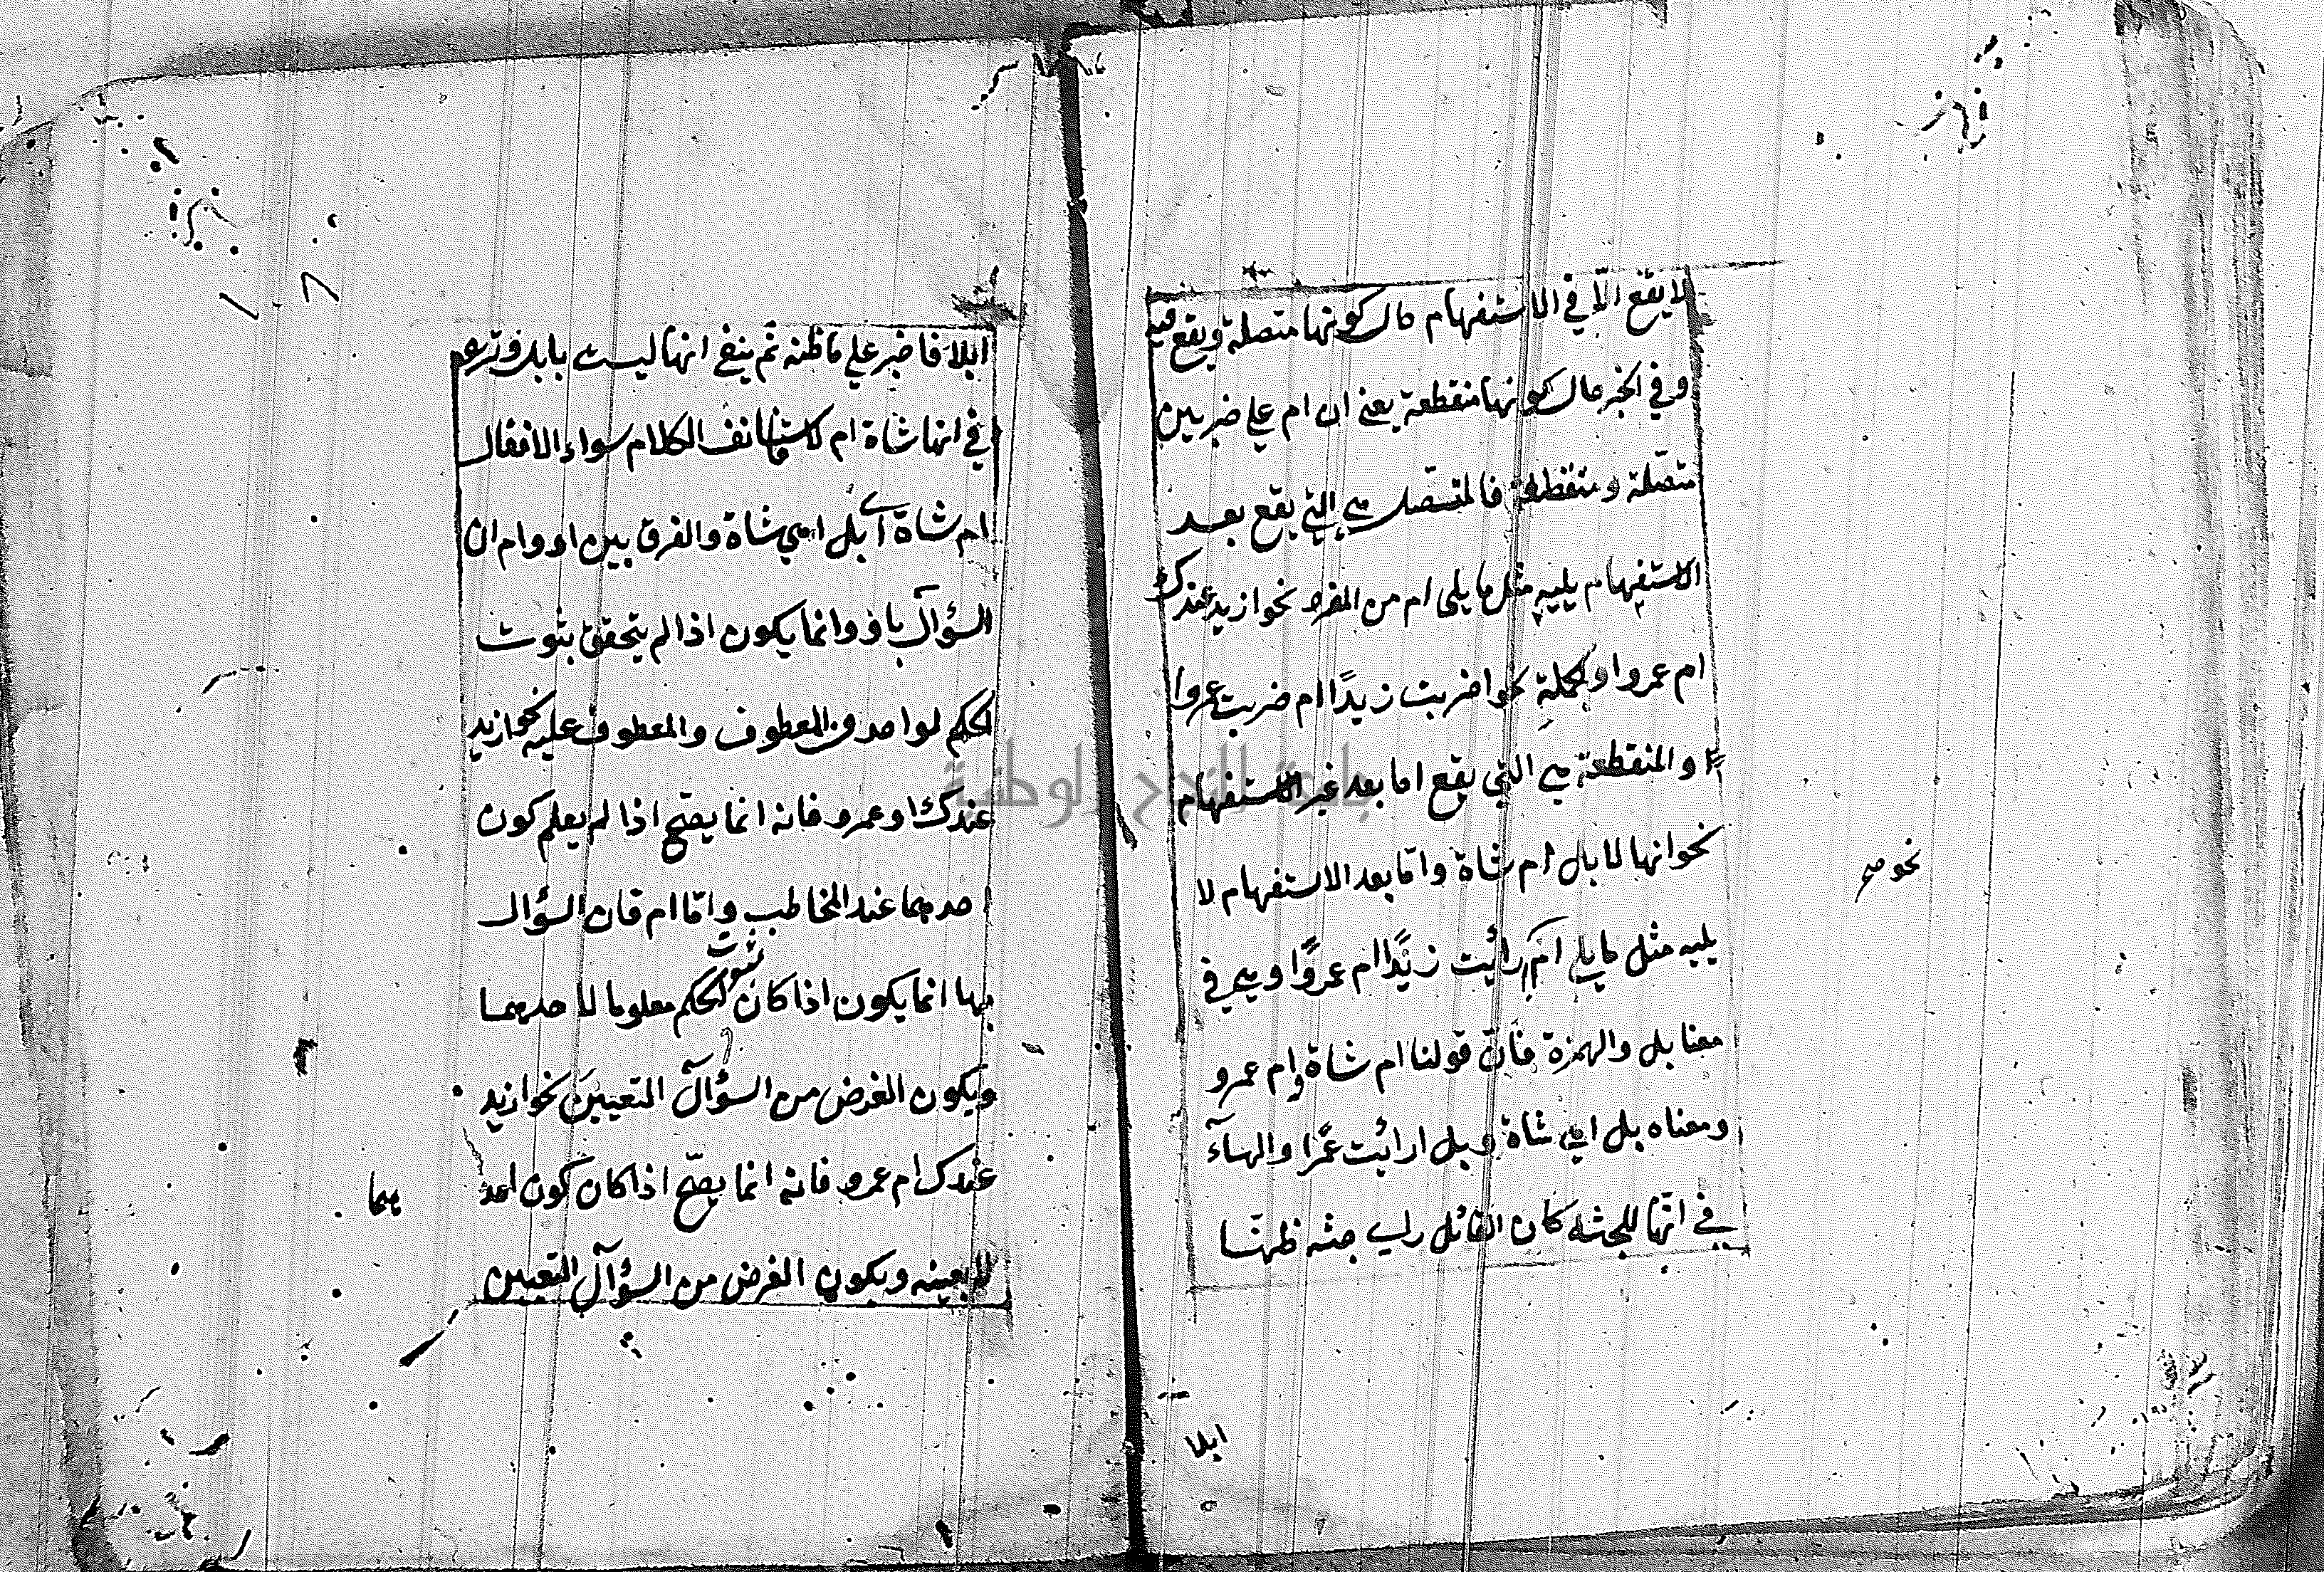 لا يقع الّا في الاستفهام حال كونها متصلة ويقع فيه
وفي الخبر حال كونها منقطعة يعني ان ام علي ضربين
متصّلة ومنقطعة فالمتصّل هي التي يقع بعد
الاستفهام يليه مثل ما يلي ام من المفرد نحو ازيد عندك
ام عمرو او الجملة نحو اضربت زيدًا ام ضربت عمروا
والمنقطعة هي التي يقع اما بعد غير الاستفهام
نحو انها لابل ام شاة وامّا بعد الاستفهام لا
نحو صح
يليه مثل ما يلي ام ارائيت زيدًا ام عمروًا وهي في
معنا بل والهمزة فانّ قولنا ام شاة وام عمرو
ومعناه بل اهي شاة وبل ارائيت عمرًا والهآء
في انّها للجثه كان القائل راي جثه ظنهّا
ابلا
ابلا فاخبر علي ما ظنه ثم ينفي انها ليست بابل وتردد
في انها شاة ام لا فاستانف الكلام سواء الا فقال
ام شاة اي بل اهي شاة والفرق بين او وام ان
السؤال باو وانما يكون اذا لم يتحقق بثوت
الحكم لواحد من المعطوف والمعطوف عليه نحو ازيد
عندك او عمرو فانه انما يصّح اذا لم يعلم كون
احدهما عند المخاطب وامّا ام فان السؤال
بها انما يكون اذا كان ثبوت الحكم معلوما لاحدهما
ويكون الغرض من السؤال التعيين نحو ازيد
عندك ام عمرو فانه انما يصّح اذا كان كون احد
هما
لا بعينه ويكون الغرض من السؤآل التعيين
جامعة النجاح الوطنية